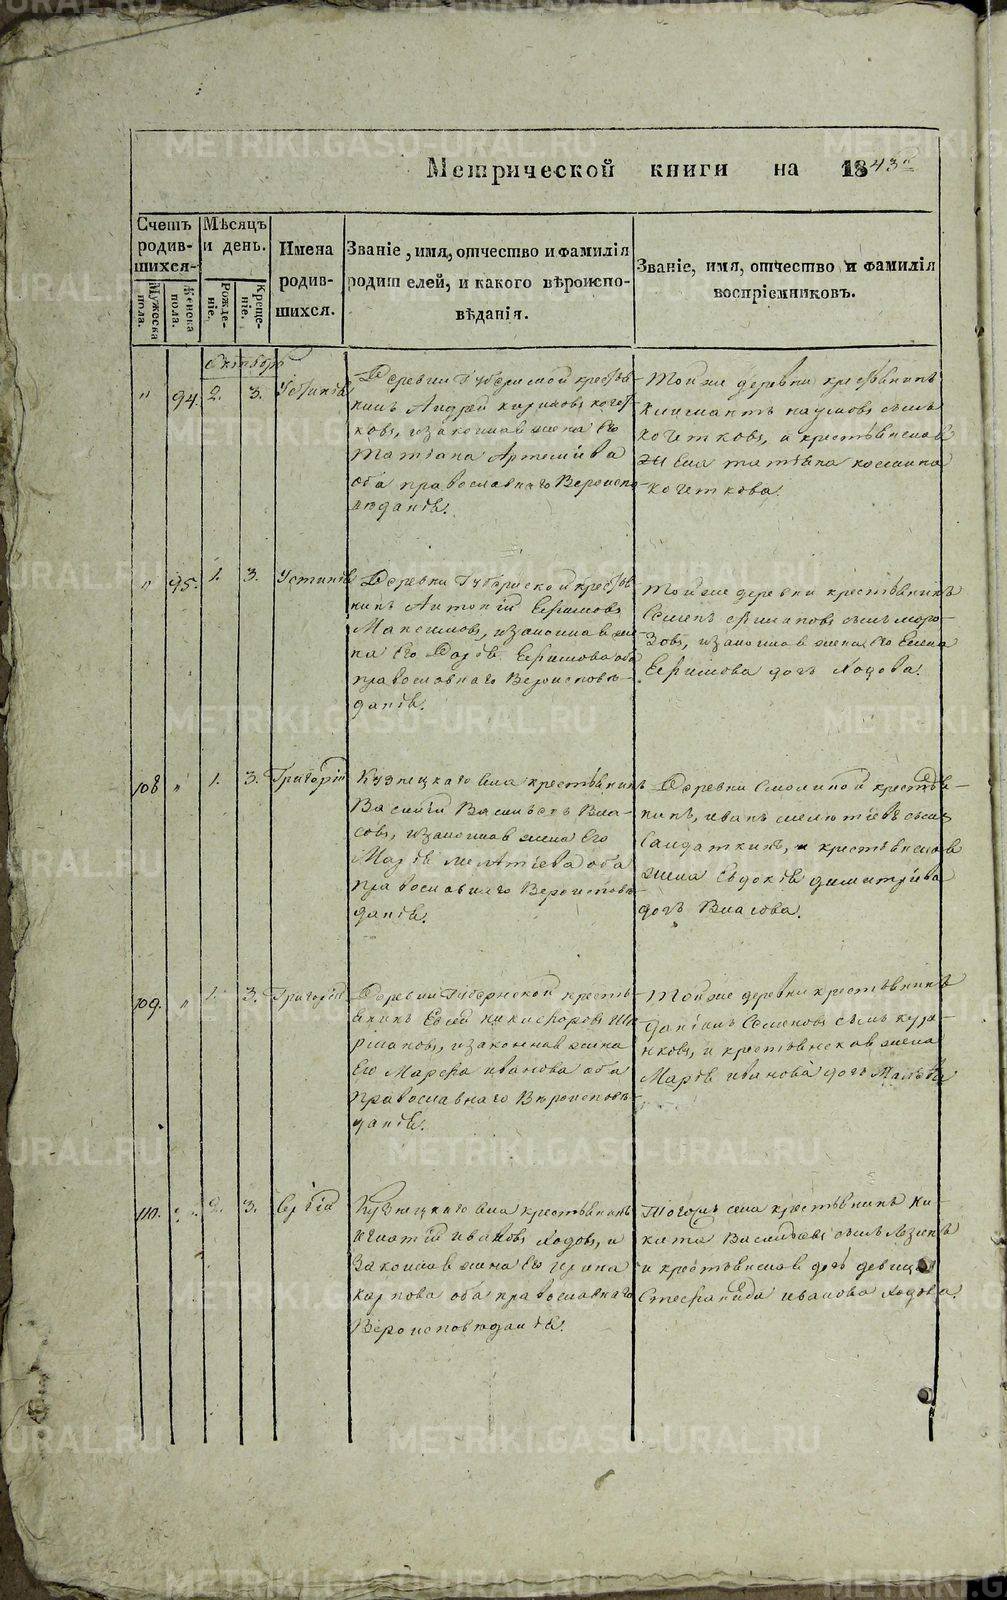 Метрической книги на 1843й
Счетъ родившихся
Мужеска пола.
Женска пола.
Мѣсяцъ и день.
Рожденіе.
Крещеніе.
Имена родившихся.
Званіе, имя, отчество и фамилія
родителей, и какого вѣроиспо-
вѣданія.
Званіе, имя, отчество и фамилія
воспріемниковъ.
Октябрь
" 94. 2. 3. Устинія
Деревни Губернской крестья
нинъ Андрей
законная жена его
Татіана Артеміева
оба православнаго Вероиспо-
веданія.
Той же деревни крестьянинъ
Климантъ наумовъ сынъ
кочетковъ, и крестьянская
жена татіяна космина
кочеткова.
" 95. 1. 3. Устинія
Деревни Губернской крестья
нинъ Антоній Ефимовъ
Максимовъ, и законная же
на его Дарія Ефимова оба
православнаго Вероисповѣ-
данія.
Той же деревни крестьянинъ
Семенъ сынъ моро-
зовъ, и законная жена его Елена
Ефимова дочь Ходова.
108 " 1. 3. Григорій
Кузнецкаго села крестьянинъ
Василій Васильевъ Вла-
совъ, и законная жена Его
Марія оба
православнаго Вероисповѣ-
данія.
Деревни Смолиной крестья-
нинъ, иванъ сынъ
Салдаткинъ, и крестьянская
жена Евдокія димитріева
дочь Власова.
109. " 1. 3. Григорій
Деревни Губернской кресть
янинъ Евсей никифоровъ
законная жена
Его Марфа иванова оба
православнаго Вѣроисповѣ-
данія.
Той же деревни крестьянинъ
Даніилъ Семеновъ сынъ
и крестьянская жена
Марія иванова дочь
110. " 2. 3. Сергій
Кузнецкаго села крестьянинъ
Игнатій ивановъ Ходовъ, и
Законная жена Его ирина
карпова оба православнаго
Вероисповѣданія.
Тогожъ села крестьянинъ Ни-
кита Васильевъ сынъ
и крестьянская дочь девица
Стефанида иванова Ходова.
METRIKI.GASO-URAL.RU